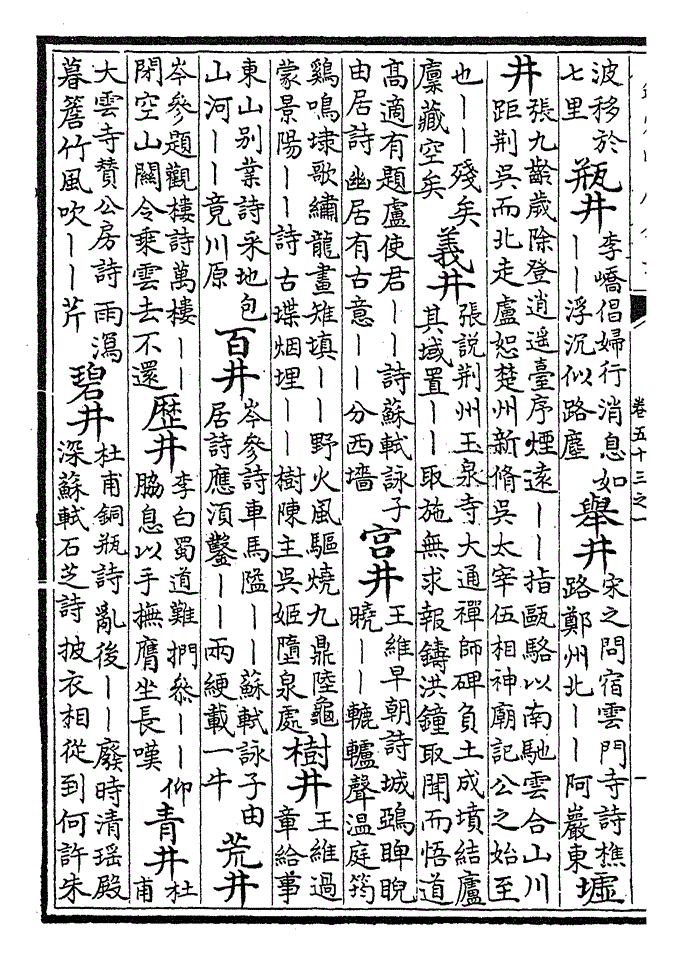 波移於
七里
瓶井
李嶠倡婦行消息如
——浮沉似路塵
舉井
宋之問宿雲門寺詩樵
路鄭州北——阿巖東
墟
井
張九齡歲除登逍遥臺序煙遠——指甌駱以南馳雲合山川
距荆吳而北走盧恕楚州新脩吳太宰伍相神廟記公之始至
也——殘矣
廩藏空矣
義井
張説荆州玉泉寺大通禪師碑負土成墳結廬
其域置——取施無求報鑄洪鐘取聞而悟道
高適有題盧使君——詩蘇軾詠子
由居詩幽居有古意——分西墻
宫井
王維早朝詩城鵶睥睨
曉——轆轤聲温庭筠
鷄鳴埭歌繡龍畫雉填——野火風驅燒九鼎陸龜
蒙景陽——詩古堞烟埋——樹陳主吳姬墮泉處
樹井
王維過
韋給事
東山别業詩采地包
山河——竟川原
百井
岑參詩車馬隘——蘇軾詠子由
居詩應湏鑿——兩綆載一牛
荒井
岑參題觀樓詩萬樓——
閉空山關令乘雲去不還
歷井
李白蜀道難捫叅——仰
脇息以手撫膺坐長嘆
青井
杜
甫
大雲寺賛公房詩雨瀉
暮簷竹風吹——芹
碧井
杜甫銅瓶詩亂後——廢時清瑶殿
深蘇軾石芝詩披衣相從到何許朱
卷五十三之一
一